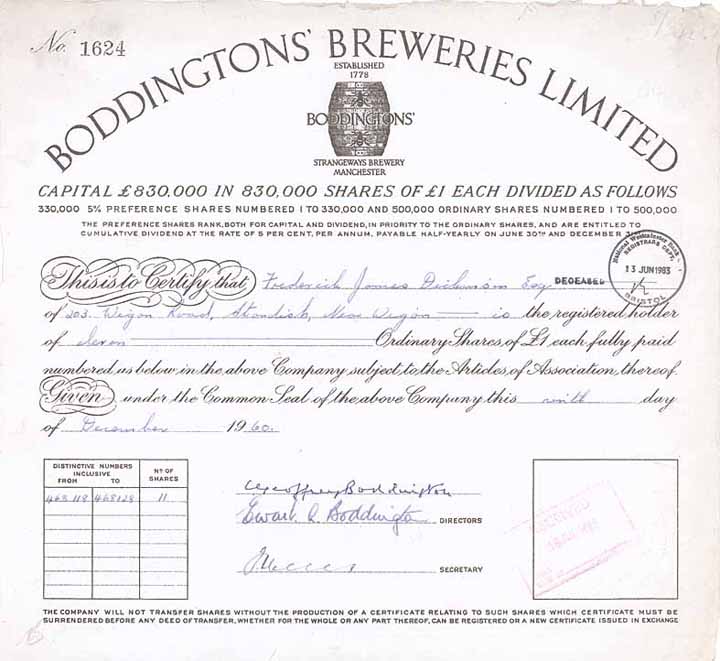 No. 1624
BODDINGTONS' BREWERIES LIMITED
ESTABLISHED
1778
BODDINGTONS'
STRANGEWAYS BREWERY
MANCHESTER
CAPITAL £830,000 IN 830,000 SHARES OF £1 EACH DIVIDED AS FOLLOWS
330,000 5% PREFERENCE SHARES NUMBERED 1 TO 330,000 AND 500,000 ORDINARY SHARES NUMBERED 1 TO 500,000
THE PREFERENCE SHARES RANK, BOTH FOR CAPITAL AND DIVIDEND, IN PRIORITY TO THE ORDINARY SHARES, AND ARE ENTITLED TO
CUMULATIVE DIVIDEND AT THE RATE OF 5 PER CENT, PER ANNUM, PAYABLE HALF-YEARLY ON JUNE 30TH AND DECEMBER
National Westminster Bank
REGISTRARS DEPT
13 JUN 1983
BRISTOL
This is to Certify that Frederick James Dickinson Esq DECEASED
of 203. Wigan Road, Standish, Near Wigan is the registered holder
of Eleven Ordinary Shares, of £1 each, fully paid
numbered, as below, in the above Company subject, to the Articles, of Association, thereof.
Given under the Common Seal of the above Company this ninth day
of December 1960.
DISTINCTIVE NUMBERS INCLUSIVE
FROM TO
Nº OF SHARES
468118 468128 11
Geoffrey Boddington
Ewart A Boddington DIRECTORS
SECRETARY
RECEIVED
THE COMPANY WILL NOT TRANSFER SHARES WITHOUT THE PRODUCTION OF A CERTIFICATE RELATING TO SUCH SHARES WHICH CERTIFICATE MUST BE
SURRENDERED BEFORE ANY DEED OF TRANSFER, WHETHER FOR THE WHOLE OR ANY PART THEREOF, CAN BE REGISTERED OR A NEW CERTIFICATE ISSUED IN EXCHANGE